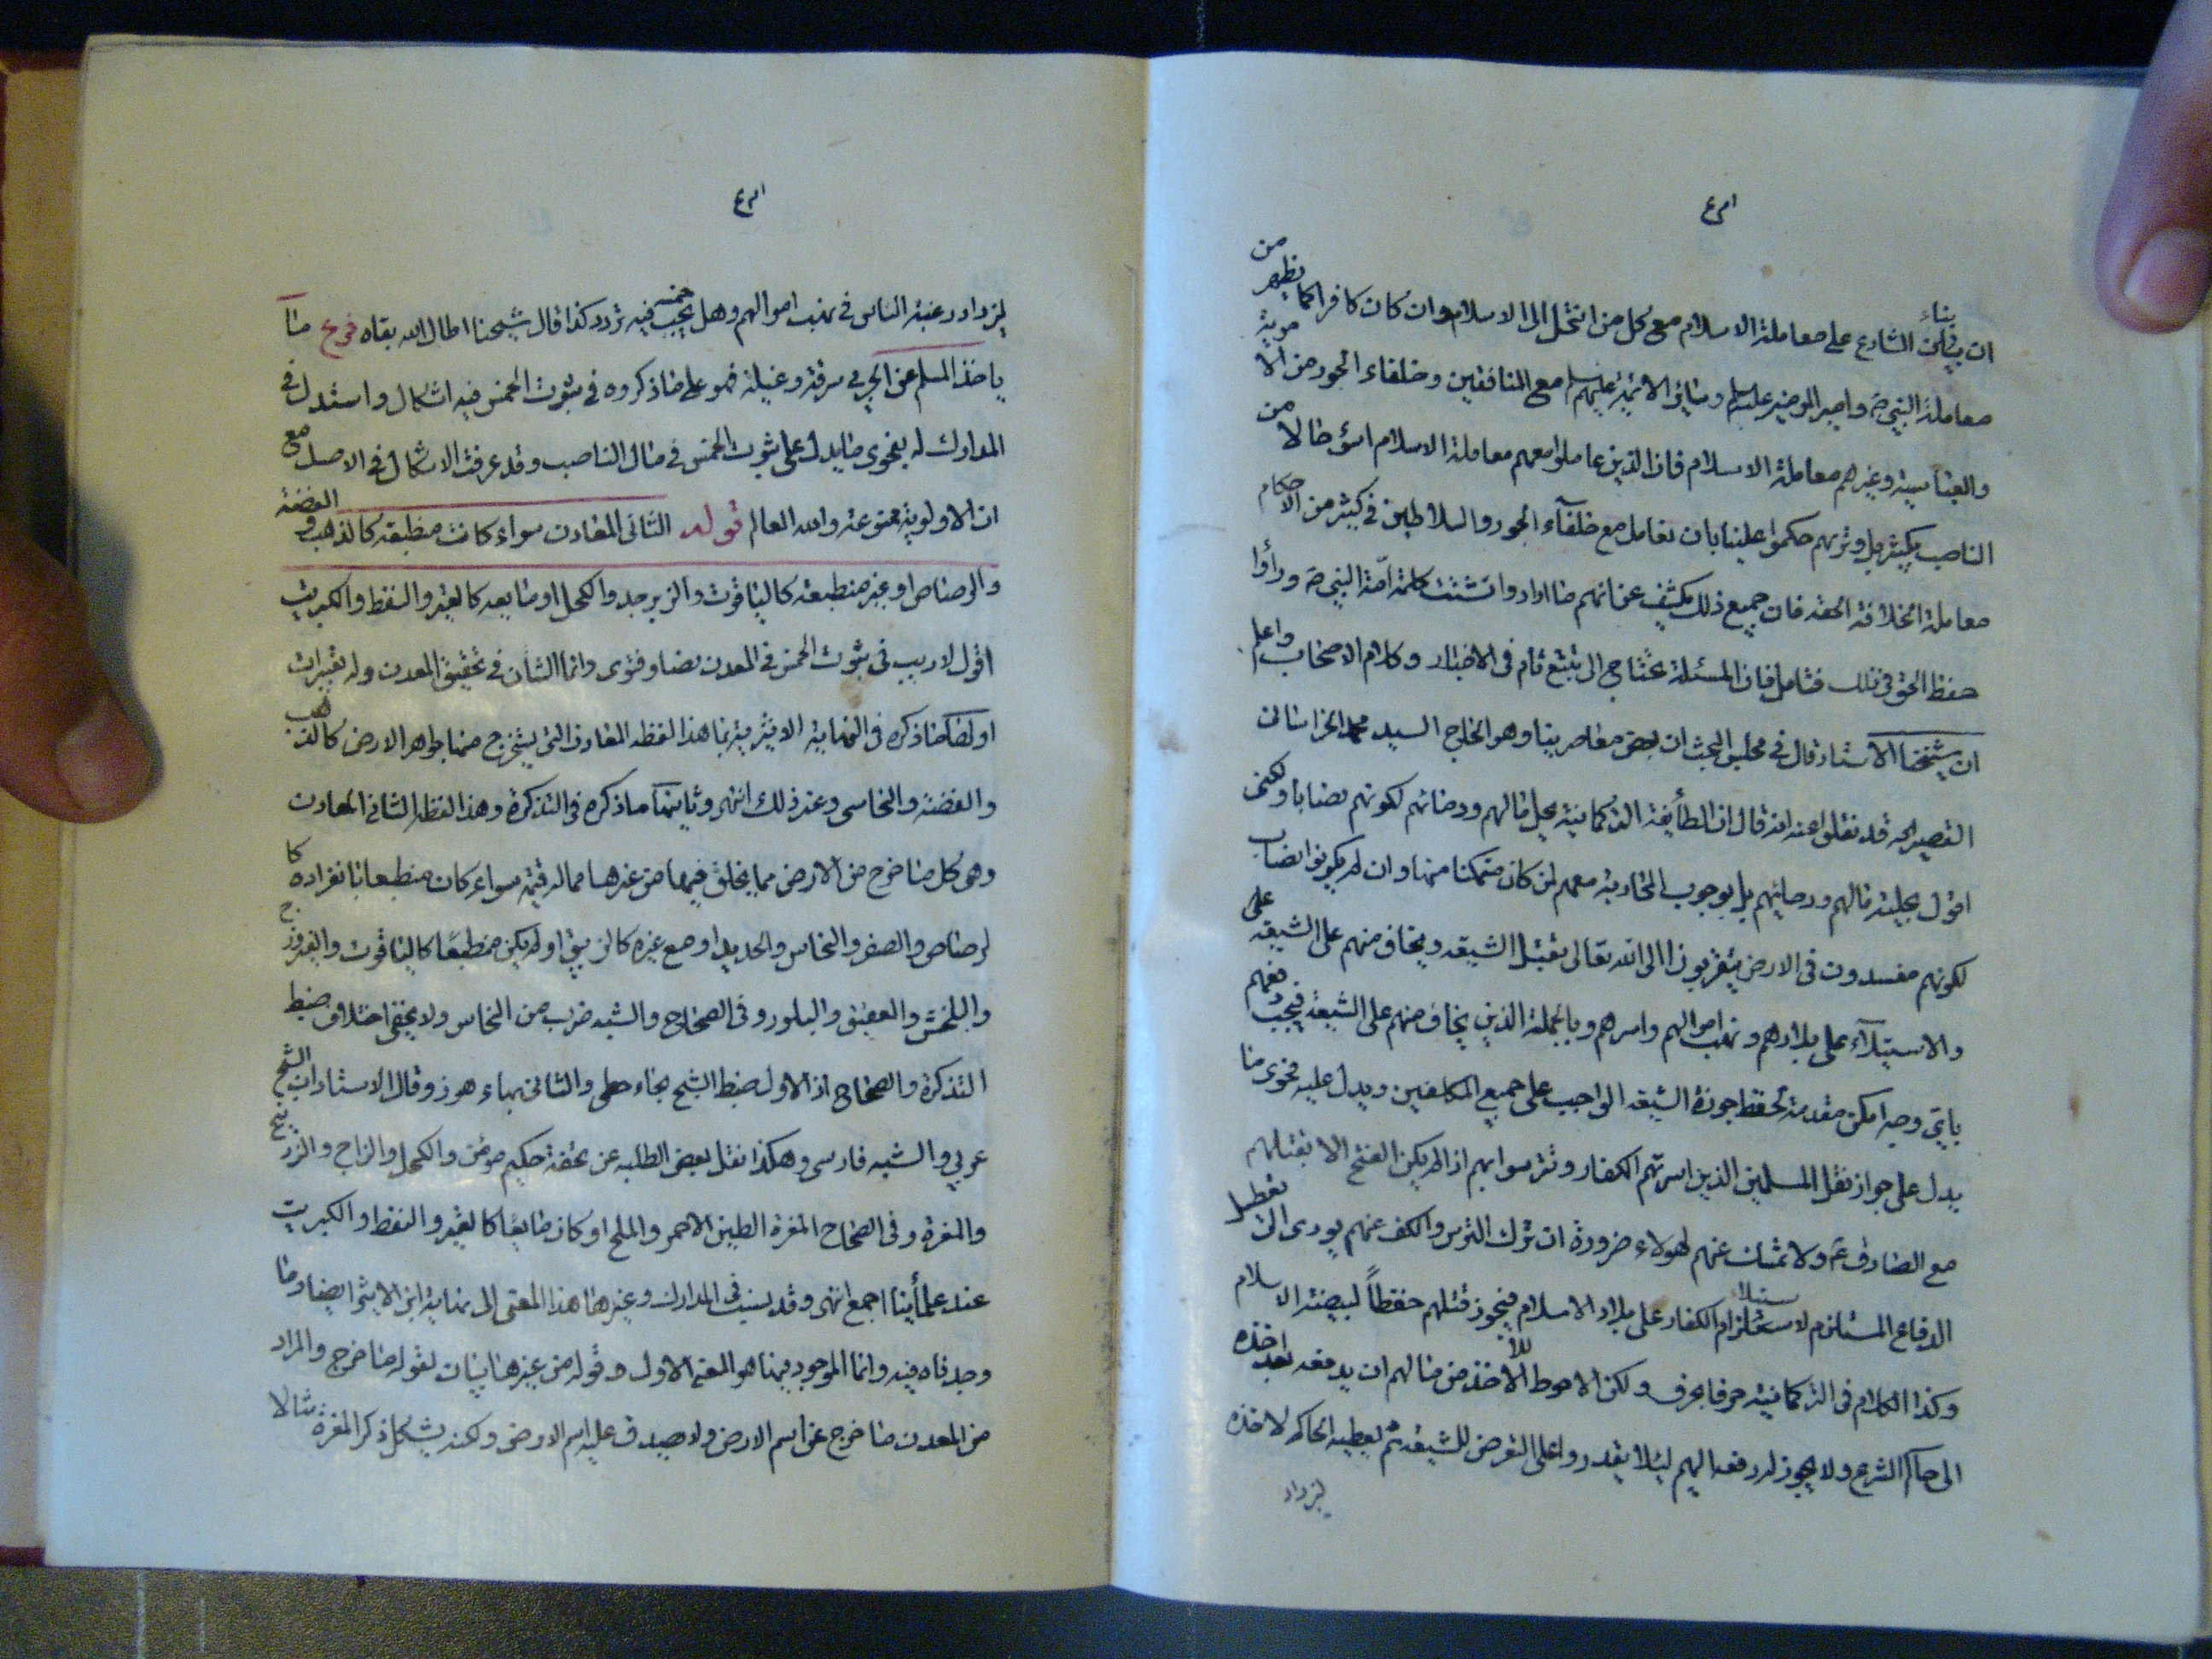 ان يقال بناء الشارع على معاملة الاسلام مع كل من انتحل الى الاسلام وان كان كافرا كما يظهر من
معاملة النبي ص وامير المومنين عليه السلم وسائر الائمة عليهم السلم مع المنافقين وخلفاء الجور من الاموية
والعباسية وغيرهم معاملة الاسلام فان الذين عاملوا معهم معاملة الاسلام اسؤ حالا من
الناصب بكثير بل وتريهم حكموا علينا بان نعامل مع خلفآء الجور والسلاطين في كثير من الاحكام
معاملة الخلافة الحقه فان جميع ذلك يكشف عن انهم ما ارادوا تشتت كلمة امّة النبي ص ورأوا
حفظ الحق في ذلك فتامل فان المسئلة تحتاج الى تتبع تام في الاخبار وكلام الاصحاب واعلم
ان شيخنا الاستاد قال في مجلس البحث ان بعض معاصرينا وهو الحاج السيد محمد الخراسانى
القصير قد نقلوا عنه انه قال ان الطايفة التركمانية يحل مالهم ودمائهم لكونهم نصابا ولكنى
اقول بحلية مالهم ودمائهم بل بوجوب المحاربة معهم لمن كان متمكنا منها وان لم يكونوا نصاب
لكونهم مفسدون فى الارض يتقربون الى الله تعالى بقتل الشيعه ويخاف منهم على الشيعه على
والاستيلآء على بلادهم ونهب اموالهم واسرهم وبالجملة الذين يخاف منهم على الشيعة فيجب دفعهم
باى وجه امكن مقدمة لحفظ حوزة الشيعه الواجب على جميع المكلفين ويدل عليه فحوى ما
يدل على جواز قتل المسلمين الذين اسرتهم الكفار وتترسوا بهم اذا لم يكن الفتح الا بقتلهم
مع الصادق ع ولا تمسك عنهم لهولاء ضرورة ان ترك الترس والكف عنهم يودى الى تعطيل
الدفاع المستلزم لاستيلاء الكفار على بلاد الاسلام فيجوز قتلهم حفظاً لبيضة الاسلام
وكذا الكلام فى التركمانية حرفا بحرف ولكن الاحوط للآخذ من مالهم ان يدفعه بعد اخذه
الى حاكم الشرع ولا يجوز له دفعه اليهم ليلا يقدروا على التعرض للشيعة ثم يعطيه الحاكم لاخذه
ليزداد
ليزداد رغبة الناس فى نهب اموالهم وهل يجب خمسه فيه تردد كذا قال شيخنا اطال الله بقاه فرع مآ
ياخذ المسلم من الحربى سرقة وغيلة فهو على ما ذكروه فى ثبوت الخمس فيه اشكال واستدل فى
المدارك له بفحوى ما يدل على ثبوت الخمس فى مال الناصب وقد عرفت الاشكال فى الاصل مع
ان الاولوية ممنوعة والله العالم قوله الثانى المعادن سواء كانت منطبعة كالذهب والفضة
والرصاص او غير منطبعة كالياقوت والزبرجد والكحل او مايعه كالقير والنفط والكبريت
اقول لا ريب فى ثبوت الخمس فى المعدن نصا وفتوى وانما الشأن فى تحقيق المعدن وله تفسيرات
اولها ما ذكره فى النهاية الاثيرية بما هذا لفظه المعادن التى يستخرج منها جواهر الارض كالذهب
والفضة والنحاس وغير ذلك انتهى وثانيها ما ذكره فى التذكرة وهذا لفظه الثانى المعادن
وهى كل ما خرج من الارض مما يخلق فيها من غيرها مما له قيمة سواء كان منطبعا بانفراده كا
لرصاص والصفر والنحاس والحديد او مع غيره كالزيبق او لم يكن منطبعًا كالياقوت والفيروزج
والبلخش والعقيق والبلور وفى الصحاح والشبه ضرب من النحاس ولا يخفى اختلاف ضبط
التذكرة والصحاح اذ الاول ضبط الشبح بحاء حطى والثانى بهاء هوز وقال الاستاد ان الشبح
عربي والشبه فارسى وهكذا نقل بعض الطلبه عن تحفة حكيم مؤمن والكحل والزاج والزرنيخ
والمغرة وفى الصحاح المغرة الطين الاحمر والملح او كان مايعًا كالقير والنفط والكبريت
عند علمآئنا اجمع انتهى وقد نسب فى المدارك وغيرها هذا المعنى الى نهاية ابن الاثير ايضا وما
وجدناه فيه وانما الموجود فيها هو المعنى الاول وقوله من غيرها بيان لقوله ما خرج والمراد
من المعدن ما خرج عن اسم الارض ولا يصدق عليه اسم الارض ولكنه يشكل ذكر المغرة مثالا